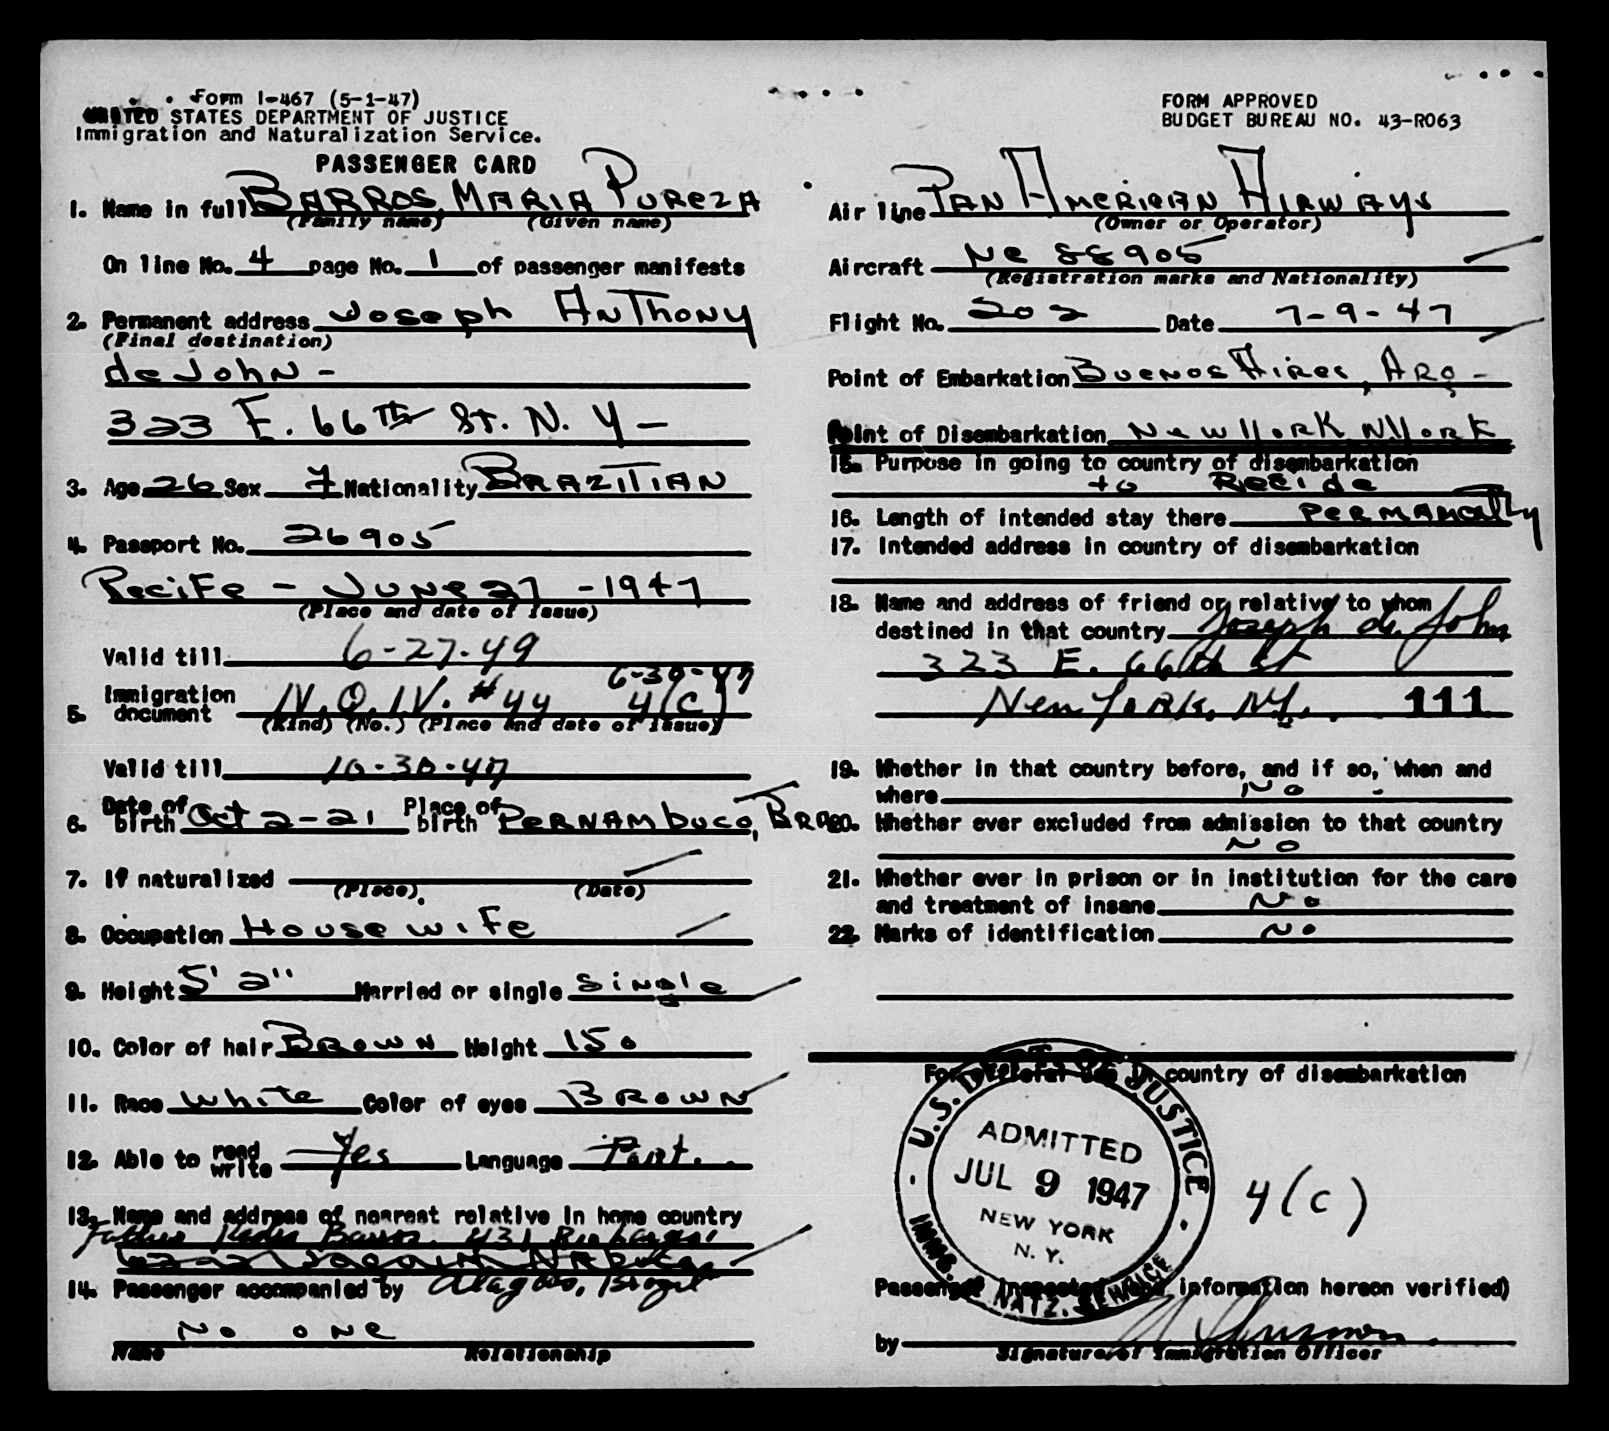 Form I-467 (5-1-47)
UNITED STATES DEPARTMENT OF JUSTICE
Immigration and Naturalization Service.
PASSENGER CARD
1. Name in full BARROS, MARIA PUREZA
(Family name) (Given name)
On line No. 4 page No. 1 of passenger manifests
2. Permanent address Joseph Anthony
(Final destination)
de John -
323 E. 66TH St. N. Y -
3. Age 26 Sex F Nationality BRAZITIAN
4. Passport No. 26905
Recife - June 27 - 1947
(Place and date of issue)
Valid till 6-27-49
6-30-47
5. Immigration document N.Q.I.V. #44 4(c)
(Kind) (No.) (Place and date of issue)
Valid till 10-30-47
6. Date of birth Oct 2-21 Place of birth PERNAMbuco, BRA
7. If naturalized
(Place) (Date)
8. Occupation Housewife
9. Height 5' 2" Married or single Single
10. Color of hair BROWN Weight 150
11. Race White Color of eyes BROWN
12. Able to read write Yes Language Port.
13. Name and address of nearest relative in home country
Father Barros 431
14. Passenger accompanied by Alagoas, Brazil
No one
Name Relationship
FORM APPROVED
BUDGET BUREAU NO. 43-R063
Air line PAN AMERICAN AIRWAYS
(Owner or Operator)
Aircraft NC 88905
(Registration marks and Nationality)
Flight No. 202 Date 7-9-47
Point of Embarkation Buenos Aires, Arg-
Point of Disembarkation New York N.York
15. Purpose in going to country of disembarkation
to Recide
16. Length of intended stay there PERMANATly
17. Intended address in country of disembarkation
18. Name and address of friend or relative to whom
destined in that country Joseph de John
323 E. 66th st
New York, NY. 111
19. Whether in that country before, and if so, when and
where No
20. Whether ever excluded from admission to that country
No
21. Whether ever in prison or in institution for the care
and treatment of insane No
22. Marks of identification No
For official use in country of disembarkation
U.S. DEPT. OF JUSTICE
ADMITTED
JUL 9 1947
NEW YORK
N. Y.
IMMIG. & NATZ. SERVICE
4(c)
Passenger inspected (and information hereon verified)
by
Signature of Immigration Officer